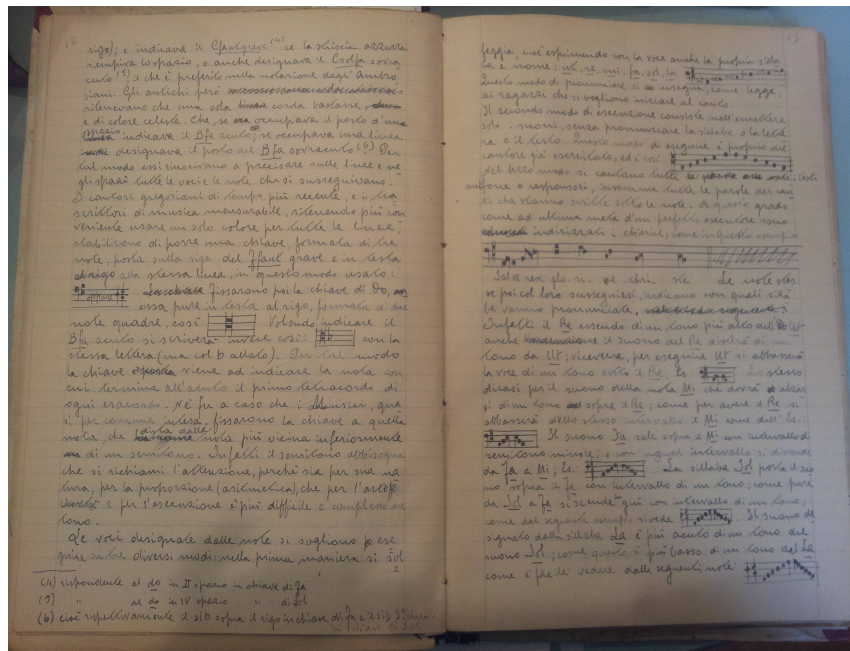 12
rigo); e indicava il Cfaut grave (4) se la striscia azzurra
rempiva lo spazio, o anche designava il Csolfa sovra
cuto (5) il che è preferito nella notazione degli Ambro
siani. Gli antichi però
ritenevano che una sola corda bastasse,
e di colore celeste. Che, se occupava il posto d'uno
spazio indicava il Bfa acuto; se occupava una linea
designava il posto del Bfa sovracuto (6) Per
tal modo essi riuscivano a precisare sulle linee e ne
gli spazi tutte le voci e le note che si susseguivano.
I cantori gregoriani di tempo più recente, e i tra
scrittori di musica mensurabile, ritenendo più con
veniente usare un solo colore per tutte le linee,
stabilirono di porre una chiave, formata di tre
note, posta sulla riga del Ffaut grave e in testa
al rigo alla stessa linea, in questo modo usato:
oppure Fissarono poi la chiave di Do,
essa pure in testa al rigo, formata di due
note quadre, così Volendo indicare il
Bfa acuto si scriverà invece così: con la
stessa lettera (ma col b allato). Per tal modo
la chiave viene ad indicare la nota con
cui termina all'acuto il primo tetracordo di
ogni esacordo. Nè fu a caso che i Musici, qua
si per comune intesa, fissarono la chiave a quella
nota, che dista dalla nota più vicina inferiormente
di un semitono. Infatti il semitono abbisogna
che si richiami l'attenzione, perchè sia per sua na
tura, per la proporzione (aritmetica), che per l'arte
e per l'esecuzione è più difficile e complesso del
tono.
Le voci designate dalle note si sogliono ese
guire in tre diversi modi: nella prima maniera si sol
(4) rispondente al do in II spazio in chiave di Fa
(5) " al do in IV spazio " di Sol
(6) cioè rispettivamente il sib sopra il rigo in chiave di Fa e il sib
13
feggia, cioè esprimendo con la voce anche la propria silla
ba e nome: ut, re, mi, fa, sol, la
Questo modo di pronunciare si insegna, come legge,
ai ragazzi che si vogliono iniziare al canto.
Il secondo modo di esecuzione consiste nell'emettere
solo i suoni, senza pronunziare la sillaba o la lette
ra o il testo. Questo modo di eseguire è proprio del
cantore già esercitato, ed è così
Nel terzo modo si cantano tutte i testi
antifone o responsori, insomma tutte le parole dei can
ti che stanno scritte sotto le note. A questo grado
come ad ultima meta d'un perfetto esecutore sono
indirizzati i chierici, come in questo esempio
Sal ve rex glo. ri. æ chri. ste Le note stes
se poi col loro susseguirsi, indicano con quali silla
be vanno pronunziate,
Infatti il Re essendo di un tono più alto dell' Ut
anche il suono del Re disterà di un
tono da Ut; viceversa, per eseguire Ut si abbasserà
la voce di un tono sotto il Re. Es. Lo stesso
dicasi per il suono della nota Mi che dovrà alzar
si di un tono sopra il Re; come per avere il Re si
abbasserà dello stesso intervallo il Mi come dall' Es.:
Il suono Fa sale sopra il Mi con intervallo di
semitono minore; e con ugual intervallo si discende
da Fa a Mi; Es.: La sillaba Sol porta il suo
no sopra il Fa con intervallo di un tono; come pure
da Sol a Fa si scende giù con intervallo di un tono,
come dal seguente esempio si vede Il suono de
signato dalla sillaba La è più acuto di un tono del
suono Sol; come questo è più basso di un tono del La
come è facile vedere dalle seguenti note: